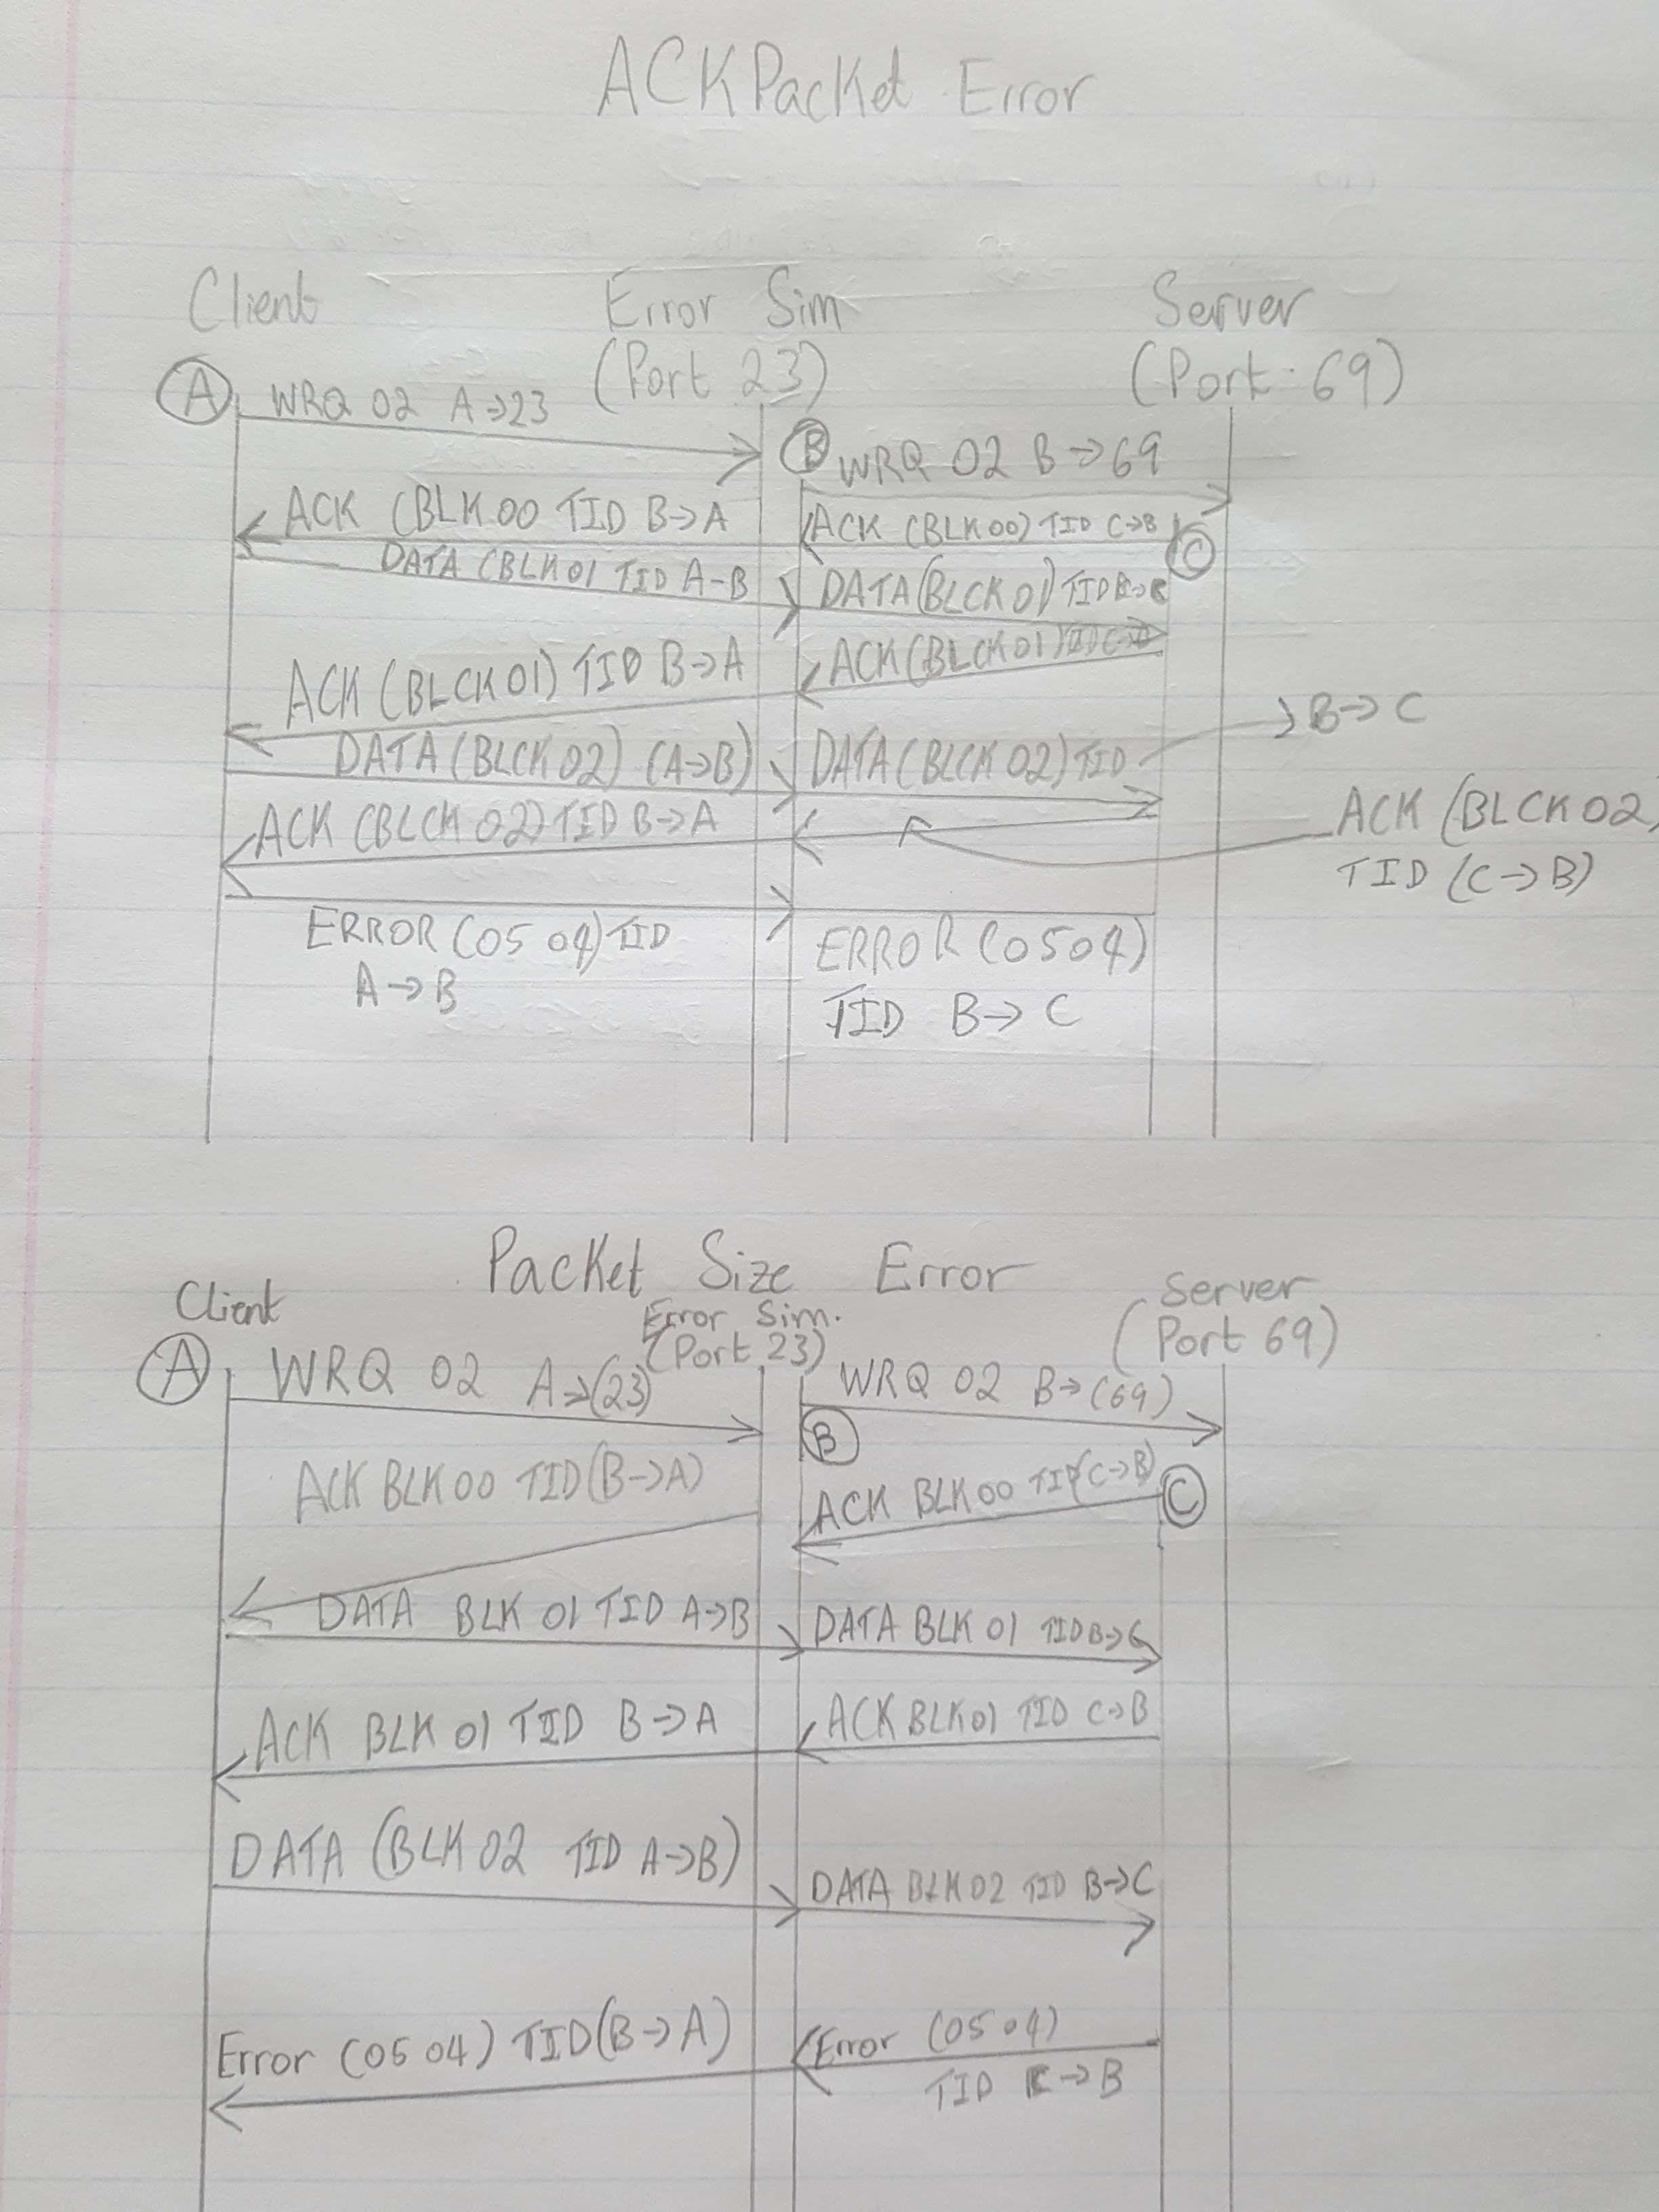 ACK Packet Error
Client Error Sim Server
(Port 23) (Port 69)
A WRQ 02 A→23
B WRQ 02 B→69
ACK (BLK 00 TID B→A ACK (BLK 00) TID C→B
C
DATA (BLK 01 TID A-B DATA (BLCK 01) TID
ACK (BLCK 01) TID B→A ACK (BLCK 01) TID
B→C
DATA (BLCK 02) (A→B) DATA (BLCK 02) TID
ACK (BLCK 02) TID B→A ACK (BLCK 02)
TID (C→B)
ERROR (05 04) TID ERROR (0504)
A→B TID B→C
Packet Size Error
Client Error Sim. Server
(Port 23) (Port 69)
A WRQ 02 A→(23) WRQ 02 B→(69)
B
ACK BLK 00 TID (B→A) ACK BLK 00 TID (C→B)
C
DATA BLK 01 TID A→B DATA BLK 01 TID B→C
ACK BLK 01 TID B→A ACK BLK 01 TID C→B
DATA (BLK 02 TID A→B) DATA BLK 02 TID B→C
Error (05 04) TID (B→A) Error (05 04)
TID C→B